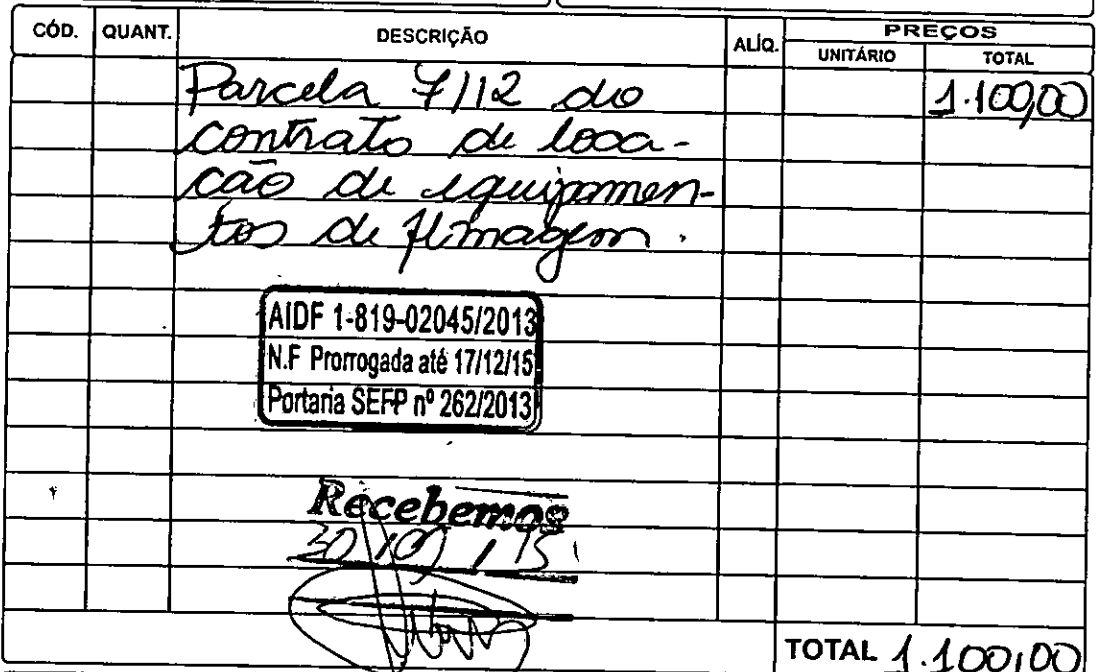 CÓD. QUANT. DESCRIÇÃO ALÍQ. PREÇOS
UNITÁRIO TOTAL
Parcela 7/12 do 1.100,00
contrato de loca-
cão de equipamen-
tos de filmagem.
AIDF 1-819-02045/2013
N.F Prorrogada até 17/12/15
Portaria SEFP nº 262/2013
Recebemos
30/09/15
TOTAL 1.100,00